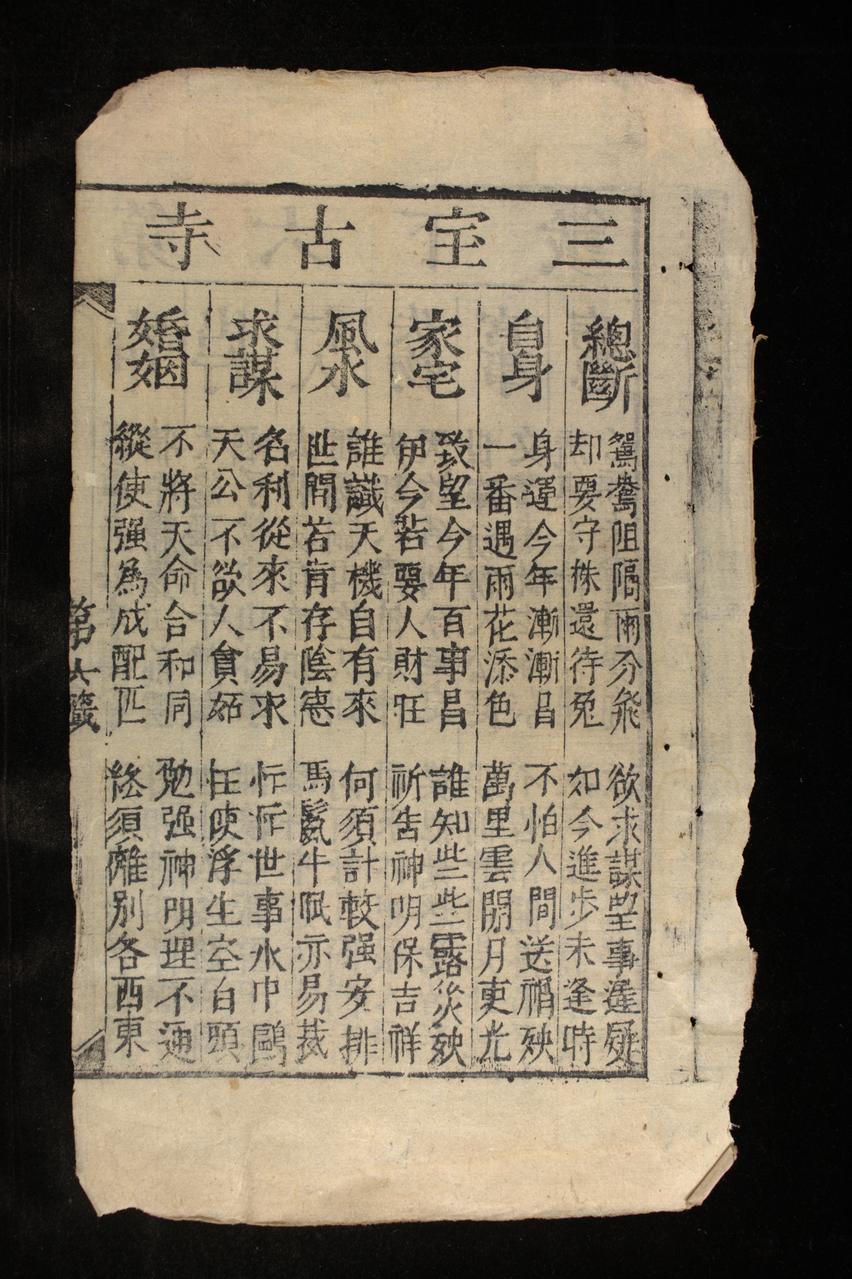 三宝古寺
總斷
鴛鴦阻隔兩分飛 欲求謀望事遲疑
却要守株還待兔 如今進步未逢時
自身
身運今年漸漸昌 不怕人間送禍殃
一番遇雨花添色 萬里雲開月更光
家宅
致望今年百事昌 誰知些些露災殃
伊今若要人財旺 祈告神明保吉祥
風水
誰識天機自有來 何須計較强安排
世間若肯存陰德 馬鬣牛眠亦易裁
求謀
名利從來不易求 忙忙世事水中鷗
天公不欲人貪妬 枉使浮生空白頭
婚姻
不將天命合和同 勉强神明理不通
縱使强為成配匹 終須離別各西東
第 籤